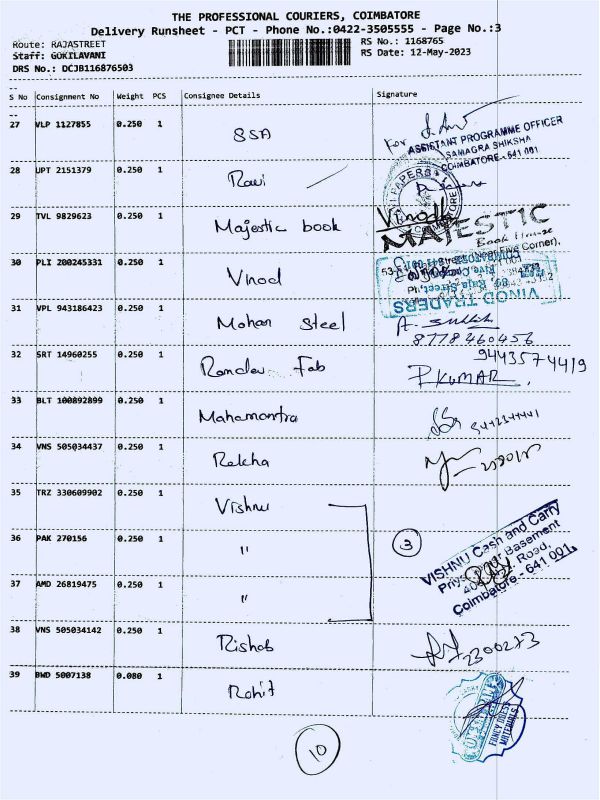 THE PROFESSIONAL COURIERS, COIMBATORE
Delivery Runsheet - PCT - Phone No.:0422-3505555 - Page No.:3
Route: RAJASTREET
RS No.: 1168765
Staff: GOKILAVANI
RS Date: 12-May-2023
DRS No.: DCJB116876503
S No Consignment No Weight PCS Consignee Details Signature
27 VLP 1127855 0.250 1 SSA For
ASSISTANT PROGRAMME OFFICER
SAMAGRA SHIKSHA
COIMBATORE - 641 001
28 UPT 2151379 0.250 1 Ravi
29 TVL 9829623 0.250 1 Majestic book Vinodh
MAJESTIC
Book House
30 PLI 200245331 0.250 1 Vinod
VINOD TRADERS
31 VPL 943186423 0.250 1 Mohan Steel
8778460456
32 SRT 14960255 0.250 1 Ramdev Fab P.KUMAR
9443574419
33 BLT 100892899 0.250 1 Mahamantra
34 VNS 505034437 0.250 1 Rekha
35 TRZ 330609902 0.250 1 Vishnu
36 PAK 270156 0.250 1 " 3
VISHNU Cash and Carry
Basement
Road,
Coimbatore - 641 001.
37 AMD 26819475 0.250 1 "
38 VNS 505034142 0.250 1 Rishab 2300273
39 BWD 5007138 0.080 1 Rohit
FANCY DRESS
MATERIALS
10